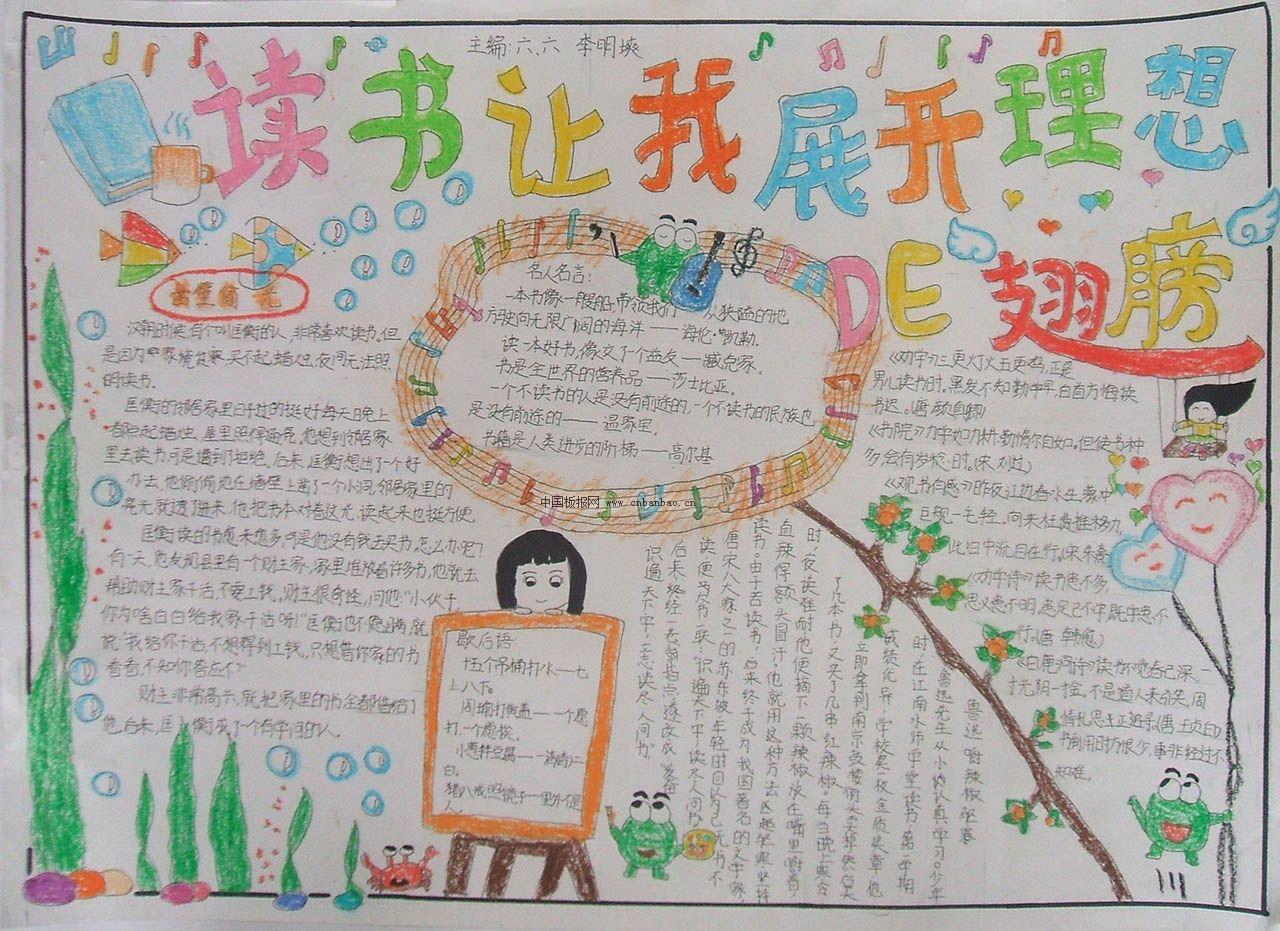 主编:六.六 李明埉
读书让我展开理想
DE翅膀
名人名言:
一本书像一艘船,带领我们 从狭隘的地
方驶向无限广阔的海洋——海伦·凯勒.
读一本好书,像交了个益友——臧克家.
书是全世界的营养品——莎士比亚.
一个不读书的人是没有前途的,一个不读书的民族也
是没有前途的——温家宝.
书籍是人类进步的阶梯——高尔基
中国板报网 www.cnbanbao.cn
汉朝时候,有个叫匡衡的人,非常喜欢读书,但
是因为家境贫寒,买不起蜡烛,夜间无法照
明读书.
匡衡的邻居家里日子过的挺好每天晚上
都点起蜡烛,屋里照得通亮,他想到邻居家
里去读书可是遭到了拒绝,后来,匡衡想出了一个好
办法,他偷偷地在墙壁上凿了一个小洞,邻居家里的
亮光就透了进来,他把书本对着这光,读起来也挺方便
匡衡读的书愈来愈多,可是他没有钱去买书,怎么办呢?
有一天,他发现县里有一个财主家,家里堆放着许多书,他就去
帮助财主家干活,不要工钱,财主很奇怪,问他:"小伙子
你为啥白白给我家干活呀!"匡衡也不隐瞒,就
说:"我给你干活,不想得到工钱,只想借你家的书
看看,不知你答应不"
财主非常高兴,就把家里的书全都借给了
他,后来,匡衡成了一个有学问的人.
歇后语:
十五个吊桶打水——七
上八下.
周瑜打黄盖——一个愿
打一个愿挨.
小葱拌豆腐——一清二
白.
猪八戒照镜子——里外不是
人.
《劝学》三更灯火五更鸡,正是
男儿读书时,黑发不知勤学早,白首方悔读
书迟。(唐·颜真卿)
《书院》力学如力耕,勤惰尔自知。但使书种
多,会有岁稔时。(宋.刘过)
《观书有感》昨夜江边春水生,蒙冲
巨舰一毛轻。向来枉费推移力,
此日中流自在行。(宋.朱熹)
《劝学诗》读书患不多,
思义患不明,患足己不学既学患不
行。(唐 韩愈)
《白鹿洞诗》读书不觉春已深,一
寸光阴一寸金,不是道人来引笑,周
情孔思正追寻。(唐.王贞白)
书到用时方恨少,事非经过不
知难。
鲁迅嚼辣椒驱寒
鲁迅先生从小认真学习。少年
时,在江南水师学堂读书,第一学期
成绩优异,学校奖一枚金质奖章,他
立即拿到南京鼓楼街头卖掉,然后买
了几本书,又买了几串红辣椒。每当晚上寒冷
时,夜读难耐,他便摘下一颗辣椒,放在嘴里嚼着,
直辣得额头冒汗,他就用这种方法驱寒坚持
读书,由于苦读书,后来终于成为我国著名的文学家,
唐宋八大家之一的苏东坡年轻时自以为已无书不
读,便写书一联:"识遍天下字,读尽人间书"
后来终经一老翁指点,遂改成"发奋
识遍天下字,立志读尽人间书".